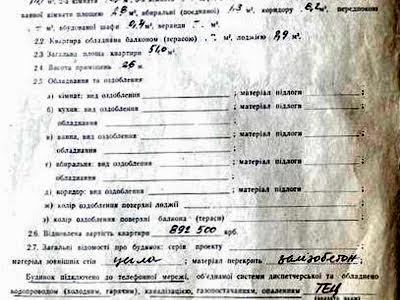 ванної кімнати площею 2,8 м², вбиральні (поєднаної) 1.3 м², коридору 6,2 м², передпокою
м², вбудованої шафи 0,4 м², веранди - м².
2.2. Квартира обладнана балконом (терасою) - м², лоджією 0,9 м².
2.3. Загальна площа квартири 51,0 м².
2.4. Висота приміщень 2.5 м.
2.5 Обладнання та оздоблення
а) кімнат: вид оздоблення ; матеріал підлоги ;
б) кухня: вид оздоблення ; матеріал підлоги ;
обладнання ;
в) ванна, вид оздоблення ; матеріал підлоги
обладнання ;
г) вбиральня: вид оздоблення ; матеріал підлоги
обладнання ;
д) коридор: вид оздоблення ; матеріал підлоги ;
ж) колір оздоблення поверхні лоджії ;
з) колір оздоблення поверхні балкона (тераси)
2.6. Відновлена вартість квартири 892 500 крб.
2.7. Загальні відомості про будинок: серія проекту ;
матеріал зовнішніх стін цегла ; матеріал перекрить залізобетон.
Будинок підключено до телефонної мережі, об'єднаної системи диспетчерської та обладнено
водопроводом (холодним, гарячим), каналізацією, газопостачанням, опаленням ТЕЦ